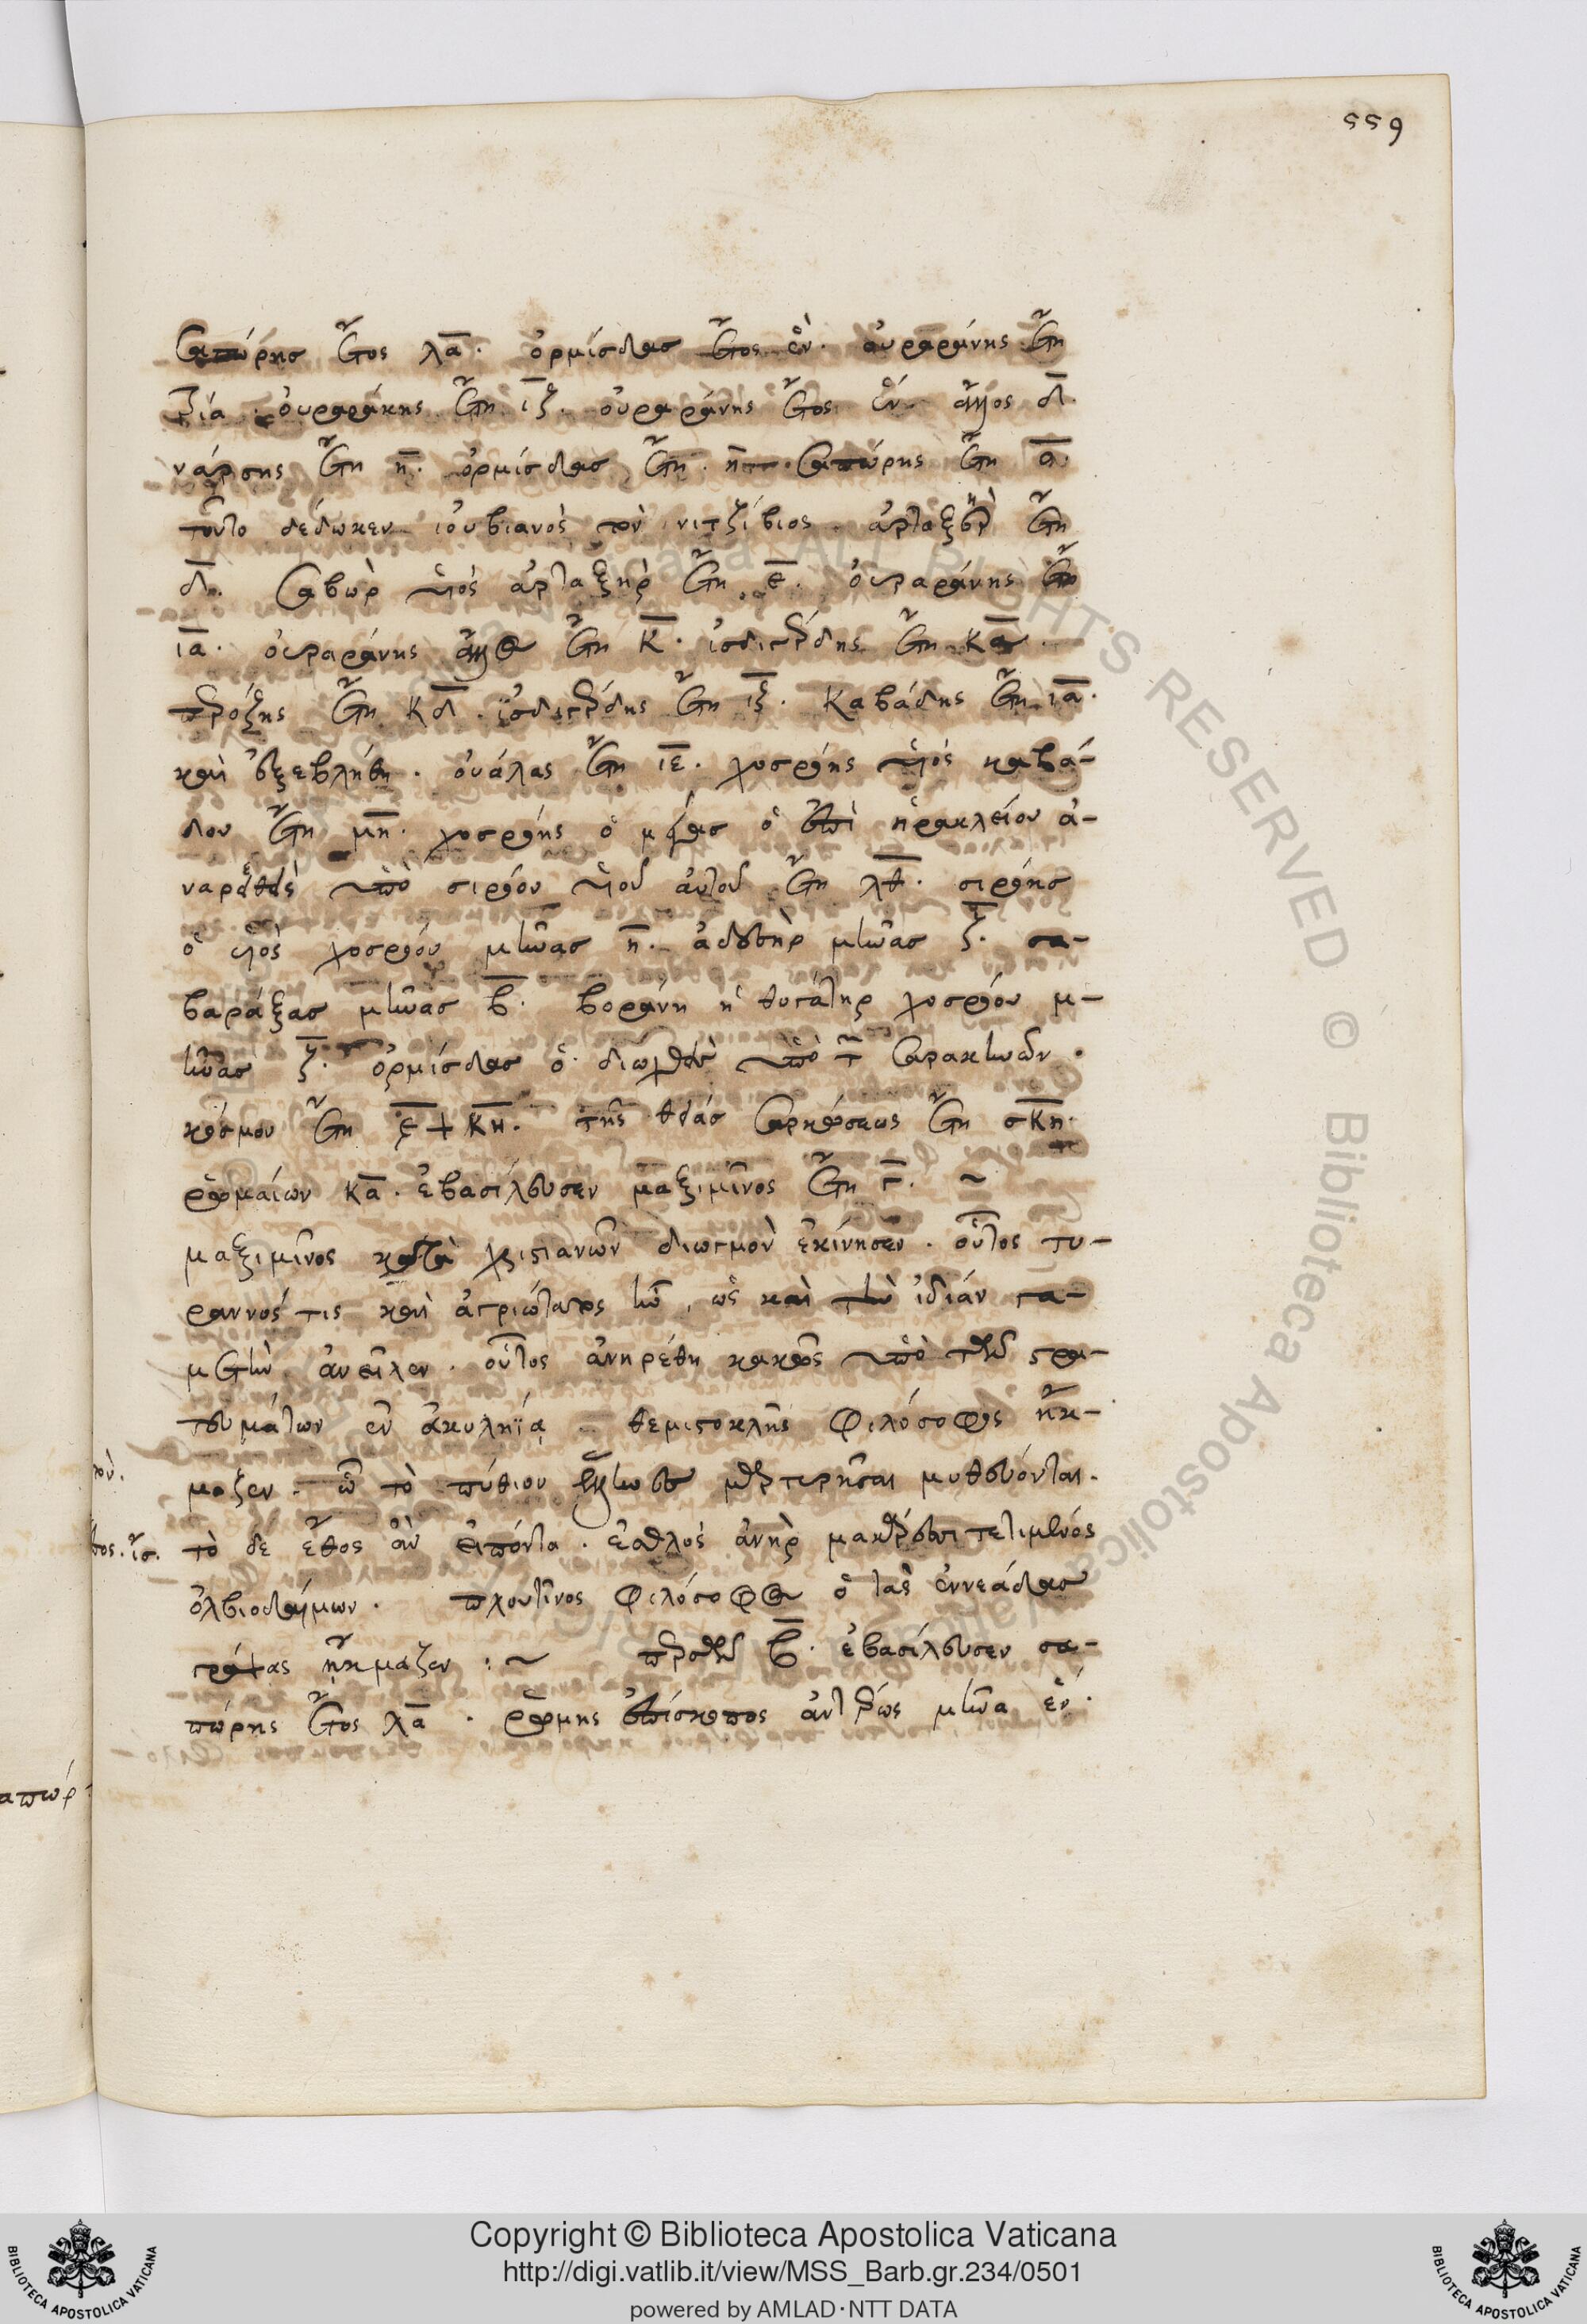 559
Σαπώρης ἔτος λα. ὁρμίσδας ἔτος ἓν. οὐραράνης ἔτη
ια. οὐραράκης ἔτη ιζ. οὐραράνης ἔτος ἓν ἄλλος δ.
νάρσης ἔτη η. ὁρμίσδας ἔτη η. Σαπώρης ἔτη ο.
τούτο δέδωκεν ἰουβιανὸς τὸν νιτζίβιος. ἀρταξὴρ ἔτη
δ. Σαβὼρ υἱὸς ἀρταξὴρ ἔτη ε. οὐραράνης ἔτη
ια. οὐραράνης ἄλλος ἔτη κ. ἰσδιγέρδης ἔτη κα.
περόζης ἔτη κδ. ἰσδιγέρδης ἔτη ιζ. καβάδης ἔτη ια.
καὶ ἐξεβλήθη. οὐάλας ἔτη ιε. χοσρόης υἱὸς καβά-
δου ἔτη μη. χοσρόης ὁ μέγας ὁ ἐπὶ ἡρακλείου ἀ-
ναρεθεὶς ὑπὸ σιρόου υἱοῦ αὐτοῦ ἔτη λθ. σιρόης
ὁ υἱὸς χοσρόου μῆνας η. ἀδεσὴρ μῆνας ζ. σα-
βαράζας μῆνας β. βοράνη ἡ θυγάτηρ χοσρόου μ-
ῆνας ζ. ὁρμίσδας ὁ διωχθεὶς ὑπὸ τ Σαρακηνῶν.
κόσμου ἔτη ςψκη. τῆς θείας Σαρκώσεως ἔτη σκη.
ῥωμαίων κα. ἐβασίλευσεν μαξιμῖνος ἔτη γ. ~
μαξιμῖνος κατὰ χριστιανῶν διωγμὸν ἐκίνησεν. οὗτος τυ-
ραννός τις καὶ ἀγριώτατος ἦν, ὡς καὶ τὴν ἰδίαν γα-
μετὴν ἀνεῖλεν. οὗτος ἀνηρέθη κακῶς ὑπὸ τῶν στρα-
τευμάτων ἐν ἀκυληΐᾳ θεμιστοκλῆς φιλόσοφος ἤκ-
μαζεν. ᾧ τὸ πύθιον μαρτυρῆσαι μυθεύονται.
τὸ δὲ ἔθος ὂν εἰπόντα. ἐσθλὸς ἀνὴρ μακάρεσσι τετιμένος
ὀλβιοδαίμων. πλουτῖνος φιλόσοφος ὁ τὰς ἐννεάδας
γράψας ἤκμαζεν :~ περσῶν β. ἐβασίλευσεν σα-
πώρης ἔτος λα. ῥώμης ἐπίσκοπος ἀντέρως μῆνα ἕν.
Copyright © Biblioteca Apostolica Vaticana
http://digi.vatlib.it/view/MSS_Barb.gr.234/0501
powered by AMLAD·NTT DATA